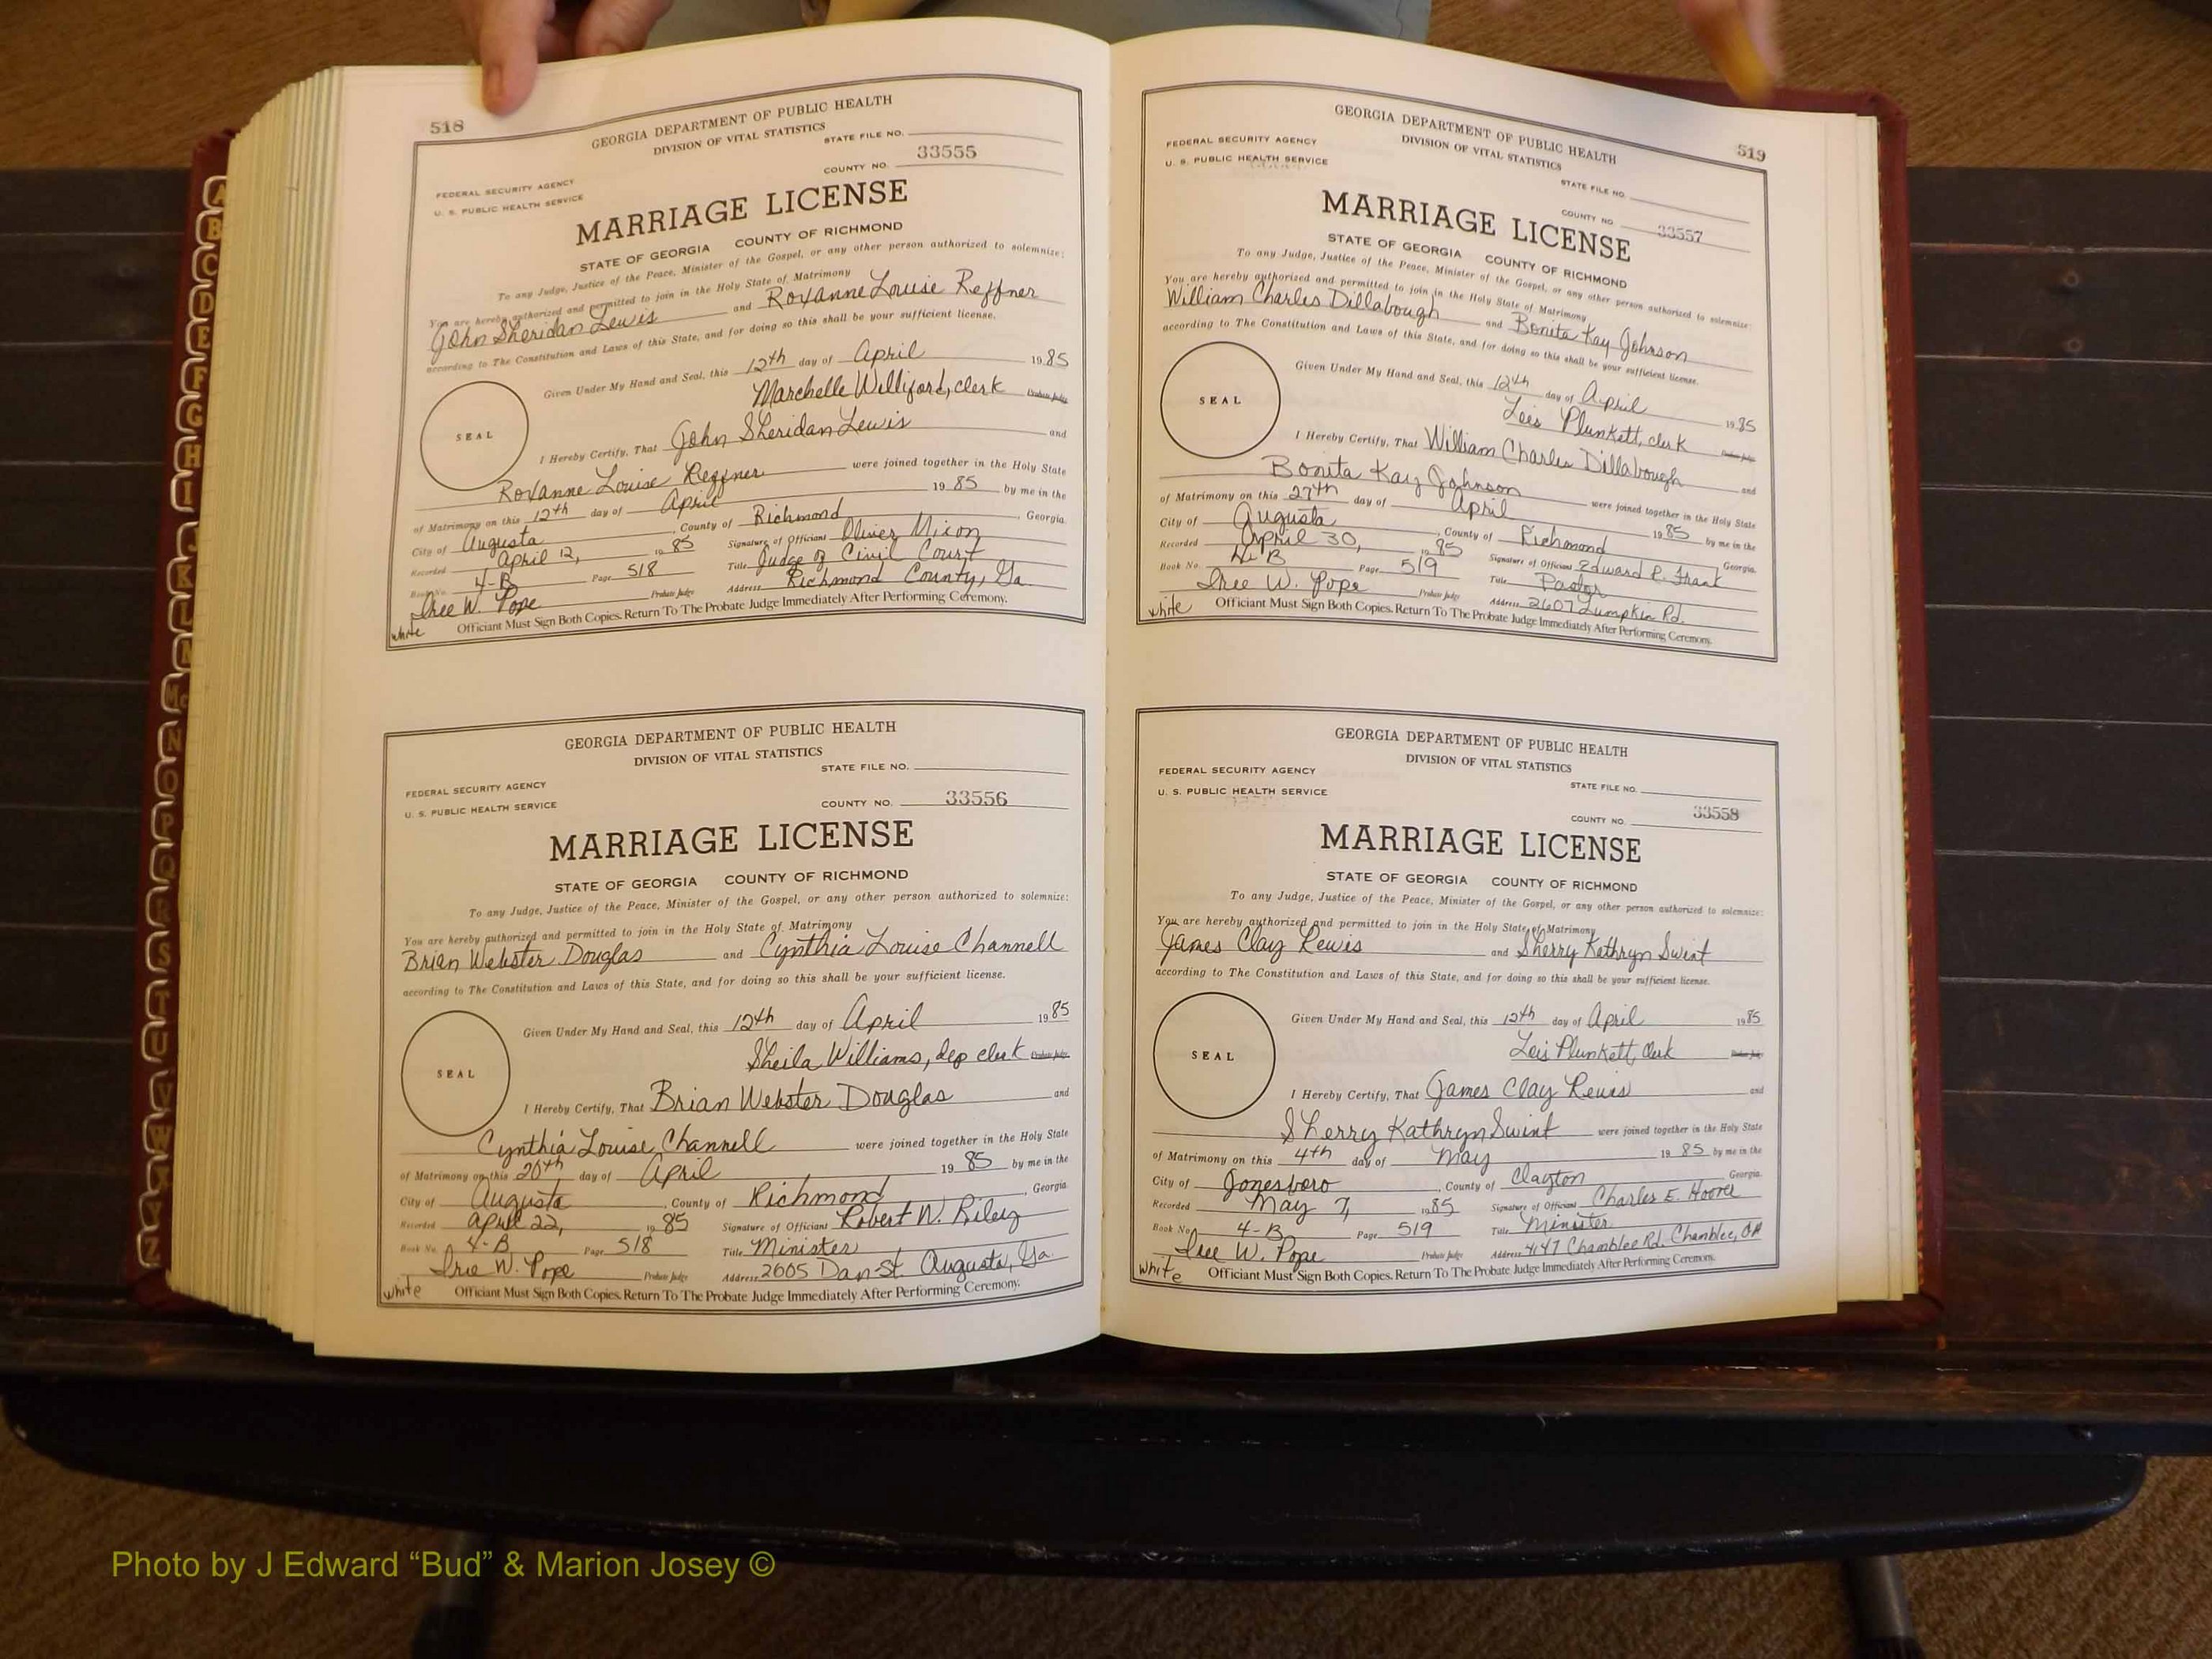 518
GEORGIA DEPARTMENT OF PUBLIC HEALTH
DIVISION OF VITAL STATISTICS
STATE FILE NO.
COUNTY NO. 33555
FEDERAL SECURITY AGENCY
U. S. PUBLIC HEALTH SERVICE
MARRIAGE LICENSE
STATE OF GEORGIA COUNTY OF RICHMOND
To any Judge, Justice of the Peace, Minister of the Gospel, or any other person authorized to solemnize:
You are hereby authorized and permitted to join in the Holy State of Matrimony
John Sheridan Lewis and Roxanne Louise Reffner
according to The Constitution and Laws of this State, and for doing so this shall be your sufficient license.
Given Under My Hand and Seal, this 12th day of April 1985
Marchelle Williford, clerk Probate Judge
SEAL
I Hereby Certify, That John Sheridan Lewis and
Roxanne Louise Reffner were joined together in the Holy State
of Matrimony on this 12th day of April 1985 by me in the
City of Augusta, County of Richmond, Georgia.
Recorded April 12, 1985 Signature of Officiant Oliver Mixon
Book No. 4-B Page 518 Title Judge of Civil Court
Iree W. Pope Probate Judge Address Richmond County, Ga.
white Officiant Must Sign Both Copies. Return To The Probate Judge Immediately After Performing Ceremony.
GEORGIA DEPARTMENT OF PUBLIC HEALTH
DIVISION OF VITAL STATISTICS
STATE FILE NO.
FEDERAL SECURITY AGENCY
U. S. PUBLIC HEALTH SERVICE
COUNTY NO. 33556
MARRIAGE LICENSE
STATE OF GEORGIA COUNTY OF RICHMOND
To any Judge, Justice of the Peace, Minister of the Gospel, or any other person authorized to solemnize:
You are hereby authorized and permitted to join in the Holy State of Matrimony
Brian Webster Douglas and Cynthia Louise Channell
according to The Constitution and Laws of this State, and for doing so this shall be your sufficient license.
Given Under My Hand and Seal, this 12th day of April 1985
Sheila Williams, dep clerk Probate Judge
SEAL
I Hereby Certify, That Brian Webster Douglas and
Cynthia Louise Channell were joined together in the Holy State
of Matrimony on this 20th day of April 1985 by me in the
City of Augusta, County of Richmond, Georgia.
Recorded April 22, 1985 Signature of Officiant Robert W. Riley
Book No. 4-B Page 518 Title Minister
Iree W. Pope Probate Judge Address 2605 Dan St. Augusta, Ga.
white Officiant Must Sign Both Copies. Return To The Probate Judge Immediately After Performing Ceremony.
519
GEORGIA DEPARTMENT OF PUBLIC HEALTH
DIVISION OF VITAL STATISTICS
FEDERAL SECURITY AGENCY
U. S. PUBLIC HEALTH SERVICE
STATE FILE NO.
COUNTY NO. 33557
MARRIAGE LICENSE
STATE OF GEORGIA COUNTY OF RICHMOND
To any Judge, Justice of the Peace, Minister of the Gospel, or any other person authorized to solemnize:
You are hereby authorized and permitted to join in the Holy State of Matrimony
William Charles Dillabough and Bonita Kay Johnson
according to The Constitution and Laws of this State, and for doing so this shall be your sufficient license.
Given Under My Hand and Seal, this 12th day of April 1985
Lois Plunkett, clerk Probate Judge
SEAL
I Hereby Certify, That William Charles Dillabough and
Bonita Kay Johnson were joined together in the Holy State
of Matrimony on this 27th day of April 1985 by me in the
City of Augusta, County of Richmond, Georgia.
Recorded April 30, 1985 Signature of Officiant Edward P.
Book No. 4-B Page 519 Title Pastor
Iree W. Pope Probate Judge Address 2607 Lumpkin Rd.
white Officiant Must Sign Both Copies. Return To The Probate Judge Immediately After Performing Ceremony.
GEORGIA DEPARTMENT OF PUBLIC HEALTH
DIVISION OF VITAL STATISTICS
FEDERAL SECURITY AGENCY
U. S. PUBLIC HEALTH SERVICE
STATE FILE NO.
COUNTY NO. 33558
MARRIAGE LICENSE
STATE OF GEORGIA COUNTY OF RICHMOND
To any Judge, Justice of the Peace, Minister of the Gospel, or any other person authorized to solemnize:
You are hereby authorized and permitted to join in the Holy State of Matrimony
James Clay Rewis and Sherry Kathryn Swint
according to The Constitution and Laws of this State, and for doing so this shall be your sufficient license.
Given Under My Hand and Seal, this 12th day of April 1985
Lois Plunkett, clerk Probate Judge
SEAL
I Hereby Certify, That James Clay Rewis and
Sherry Kathryn Swint were joined together in the Holy State
of Matrimony on this 4th day of May 1985 by me in the
City of Jonesboro, County of Clayton, Georgia.
Recorded May 7, 1985 Signature of Officiant Charles E. Hoover
Book No. 4-B Page 519 Title Minister
Iree W. Pope Probate Judge Address 4147 Chamblee Rd. Chamblee, GA
white Officiant Must Sign Both Copies. Return To The Probate Judge Immediately After Performing Ceremony.
A
B
C
D
E
F
G
H
I
J
K
L
M
Mc
N
O
P
Q
R
S
T
U
V
W
Y
Z
Photo by J Edward “Bud” & Marion Josey ©